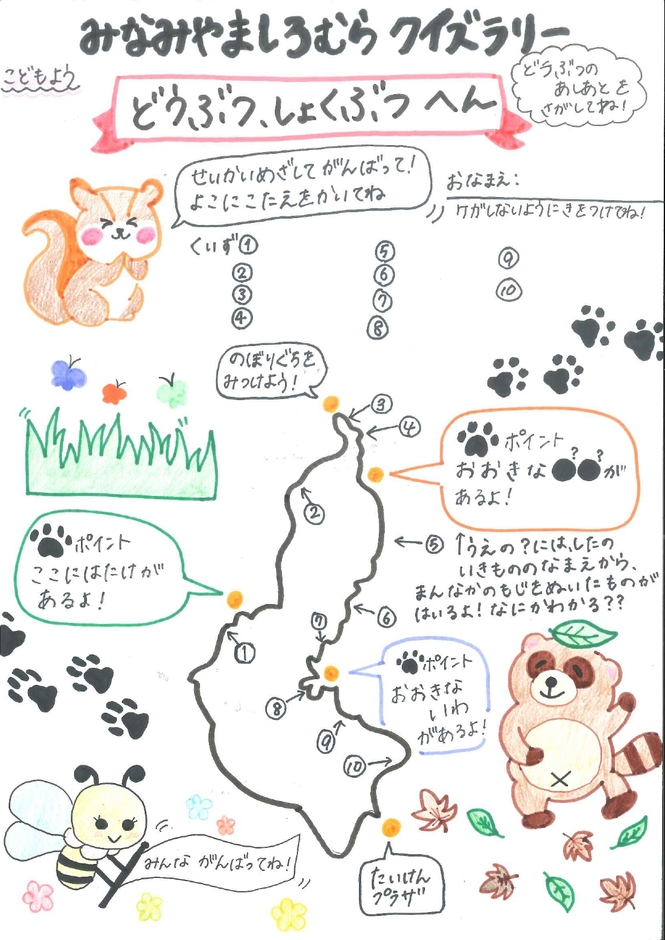 みなみやましろむら クイズラリー
こどもよう
どうぶつ、しょくぶつ へん
どうぶつの
あしあとを
さがしてね！
せいかいめざして がんばって！
よこにこたえをかいてね
おなまえ：
ケがしないようにきをつけてね！
くいず①
②
③
④
⑤
⑥
⑦
⑧
⑨
⑩
のぼりぐちを
みつけよう！
③
④
ポイント
おおきな●●が
？？
あるよ！
②
⑤
↑うえの？には、したの
いきもののなまえから、
まんなかのもじをぬいたものが
はいるよ！なにかわかる？？
ポイント
ここにはたけが
あるよ！
⑥
⑦
①
ポイント
おおきな
いわ
があるよ！
⑧
⑨
⑩
みんな がんばってね！
たいけん
プラザ